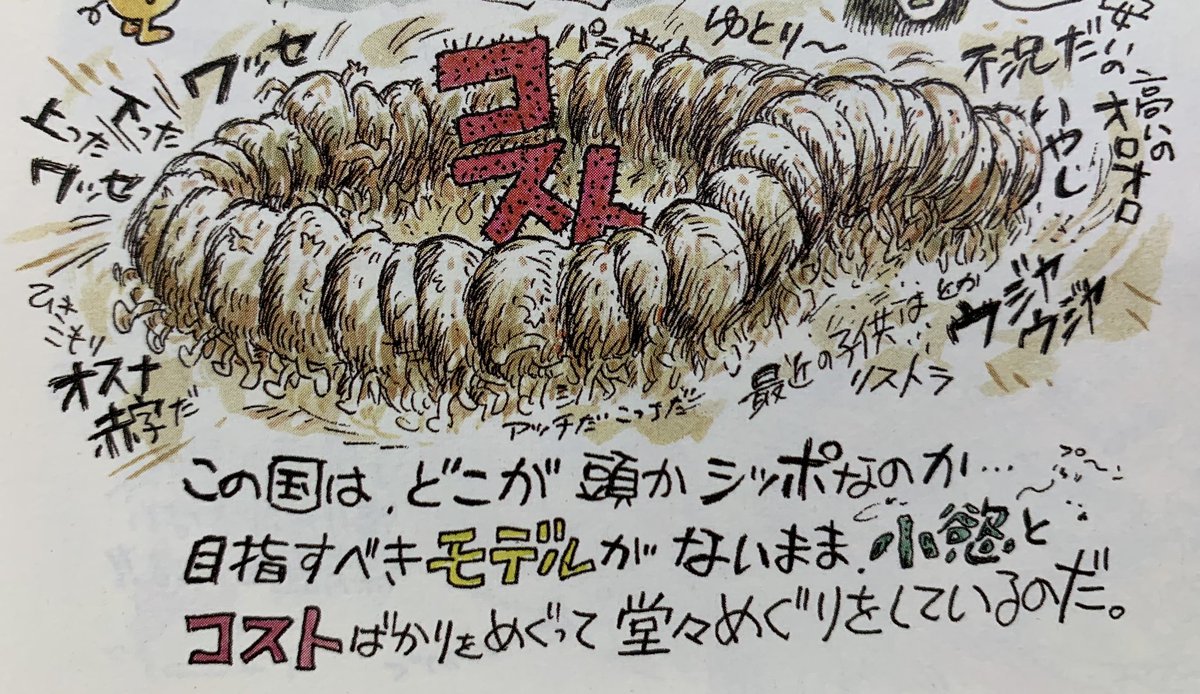 ワッセ
上った
下った
ワッセ
コスト
ゆとり〜
不況だ
いやし
安いの
高いの
オロオロ
ウジャ
ウジャ
とか
最近の子供は…
リストラ
アッチだこっちだ
ひき
こもり
オスナ
赤字だ
この国は、どこが頭かシッポなのか…
目指すべきモデルがないまま、小慾と
コストばかりをめぐって堂々めぐりをしているのだ。